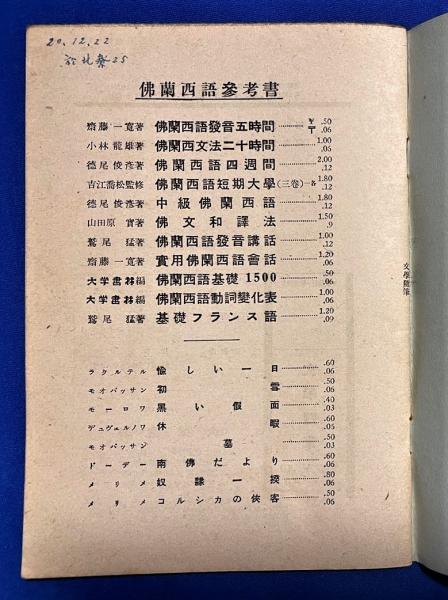 20.12.22
佛蘭西語參考書
齋藤一寬著 佛蘭西語發音五時間 ¥ .50 〒 .06
小林龍雄著 佛蘭西文法二十時間 1.00 .06
德尾俊彥著 佛蘭西語四週間 2.00 .12
吉江喬松監修 佛蘭西語短期大學(三卷)各 1.80 .12
德尾俊彥著 中級佛蘭西語 1.80 .12
山田原實著 佛文和譯法 1.50 .9
鷲尾猛著 佛蘭西語發音講話 1.00 .12
齋藤一寬著 實用佛蘭西語會話 1.20 .06
大学書林編 佛蘭西語基礎1500 .50 .06
大学書林編 佛蘭西語動詞變化表 1.00 .06
鷲尾猛著 基礎フランス語 1.20 .09
ラクルテル 愉しい一日 .60 .06
モオパッサン 初雪 .50 .06
モーロワ 黑い假面 .40 .03
デュヴェルノワ 休暇 .60 .06
モオパッサン 墓 .50 .03
ドーデー 南佛だより .60 .06
メリメ 奴隷一揆 .80 .06
メリメ コルシカの俠客 .50 .06
文學隨筆